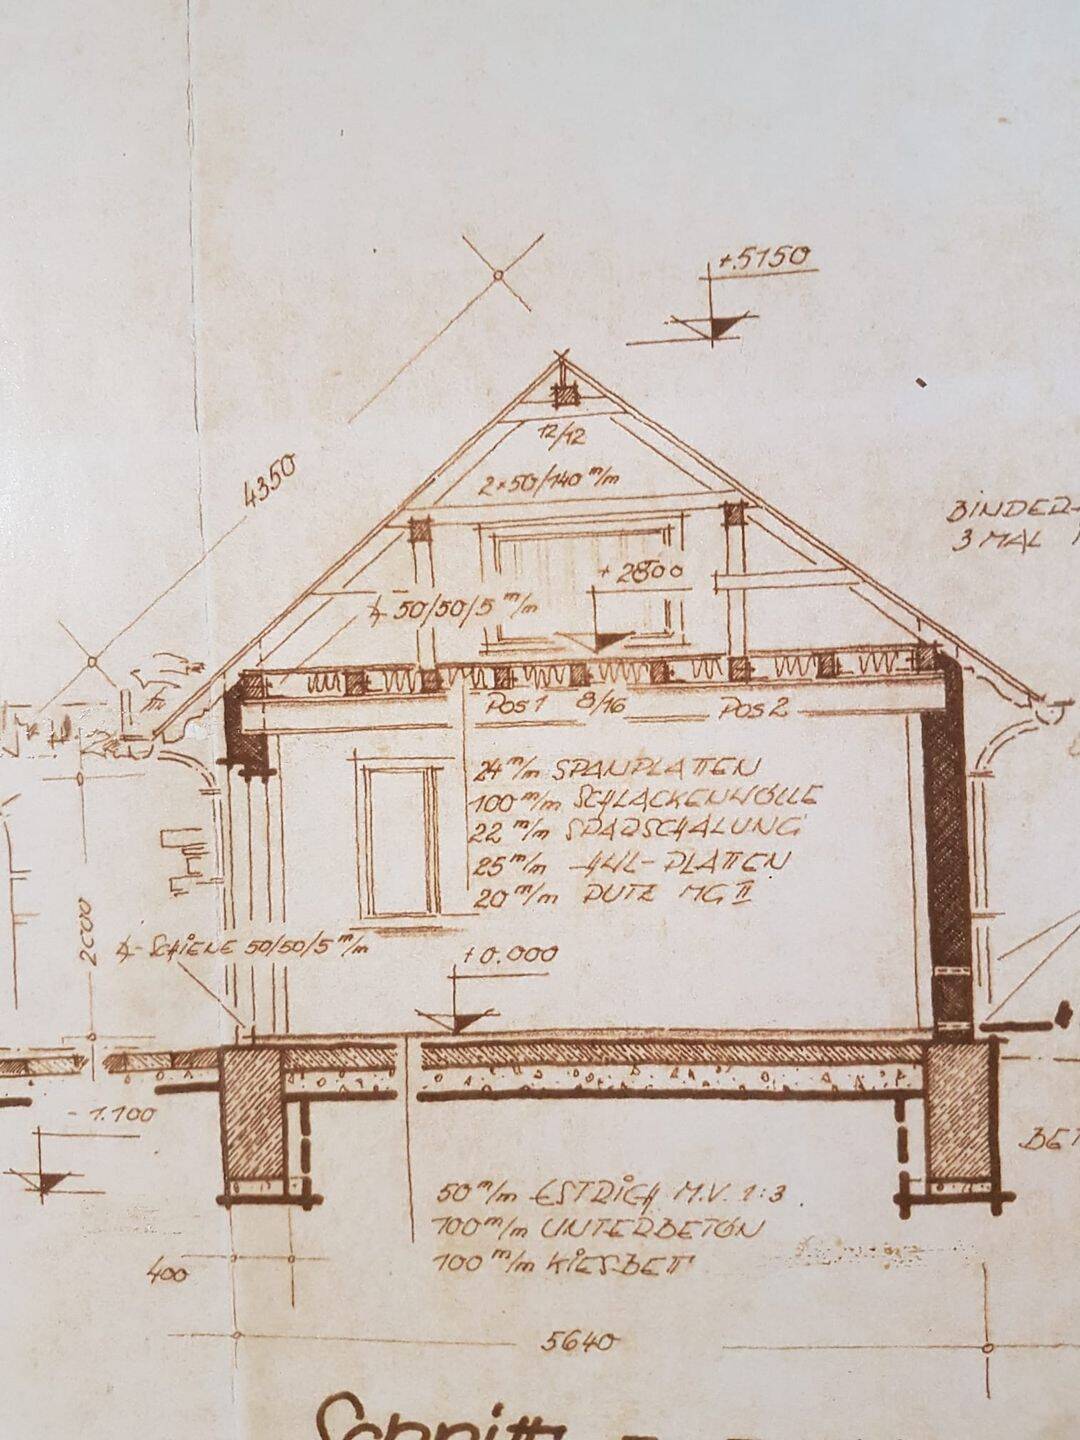 +5150
12/12
4350
2×50/140 m/m
BINDER-
3 MAL
+2800
∡ 50/50/5 m/m
POS 1 8/16 POS 2
24 m/m SPANPLATTEN
100 m/m SCHLACKENWOLLE
22 m/m SPARSCHALUNG
25 m/m HWL-PLATTEN
20 m/m PUTZ MG II
2000
∡-SCHIENE 50/50/5 m/m
±0.000
-1.100
BET
50 m/m ESTRICH M.V. 1:3
100 m/m UNTERBETON
100 m/m KIESBETT
400
5640
Schnitt